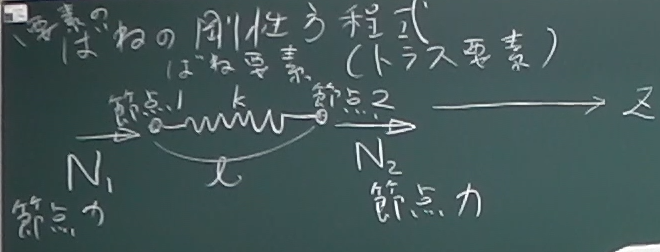 要素の
ばねの剛性方程式
ばね要素 (トラス要素)
節点1 k 節点2
N₁ l N₂ z
節点力 節点力